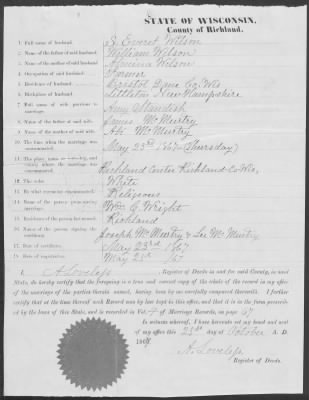 STATE OF WISCONSIN,
County of Richland.
1. Full name of husband. S. Everet Wilson
2. Name of the father of said husband. William Wilson
3. Name of the mother of said husband. Almina Wilson
4. Occupation of said husband. Farmer
5. Residence of husband. Bristol Dane Co Wis
6. Birthplace of husband. Littleton New Hampshire
7. Full name of wife previous to marriage. Amy Standish
8. Name of the father of said wife. James McMurtry
9. Name of the mother of said wife. McMurtry
10. The time when the marriage was contracted. May 23rd 1867 (Thursday)
11. The place, town or where the marriage was contracted. Richland Center Richland Co Wis,
12. The color. White
13. By what ceremony contracted. Religious
14. Name of the person pronouncing marriage. Wm C Wright
15. Residence of the person last named. Richland
16. Name of the person signing the certificate. Joseph McMurtry & Lee McMurtry
17. Date of certificate. May 23rd 1867
18. Date of registration. May 25th
I, A. Lovelass, Register of Deeds in and for said County, in said
State, do hereby certify that the foregoing is a true and correct copy of the whole of the record in my office
of the marriage of the parties therein named, having been by me carefully compared therewith. I further
certify that at the time thereof such Record was by law kept in this office, and that it is in the form prescribed
by the laws of this State, and is recorded in Vol. of Marriage Records, on page 67
In witness whereof, I have hereunto set my hand and seal
of my office this day of October A. D.
A. Lovelass
Register of Deeds.